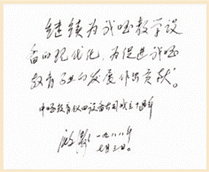 继续为我国教学设
备的现代化，为促进我国
教育事业的发展作出贡献。
中国教育仪器设备公司成立十周年
一九八八年
七月三日